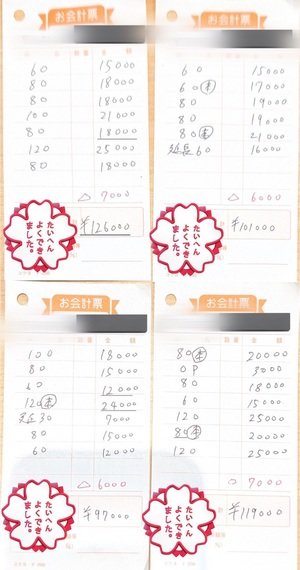 お会計票
数量 金額
60 15000
80 18000
80 18000
100 21000
80 18000
120 25000
80 18000
△ 7000
¥126000
たいへん
よくでき
ました。
お会計票
数量 金額
60 15000
60 本 17000
80 19000
80 19000
80 本 21000
延長60 16000
△ 6000
¥101000
たいへん
よくでき
ました。
お会計票
数量 金額
100 18000
80 15000
60 12000
120 本 24000
30 7000
80 15000
60 12000
△ 6000
¥97000
たいへん
よくでき
ました。
お会計票
数量 金額
80 本 20000
OP 3000
80 18000
60 15000
120 25000
80 本 20000
120 25000
△ 7000
¥119000
たいへん
よくでき
ました。